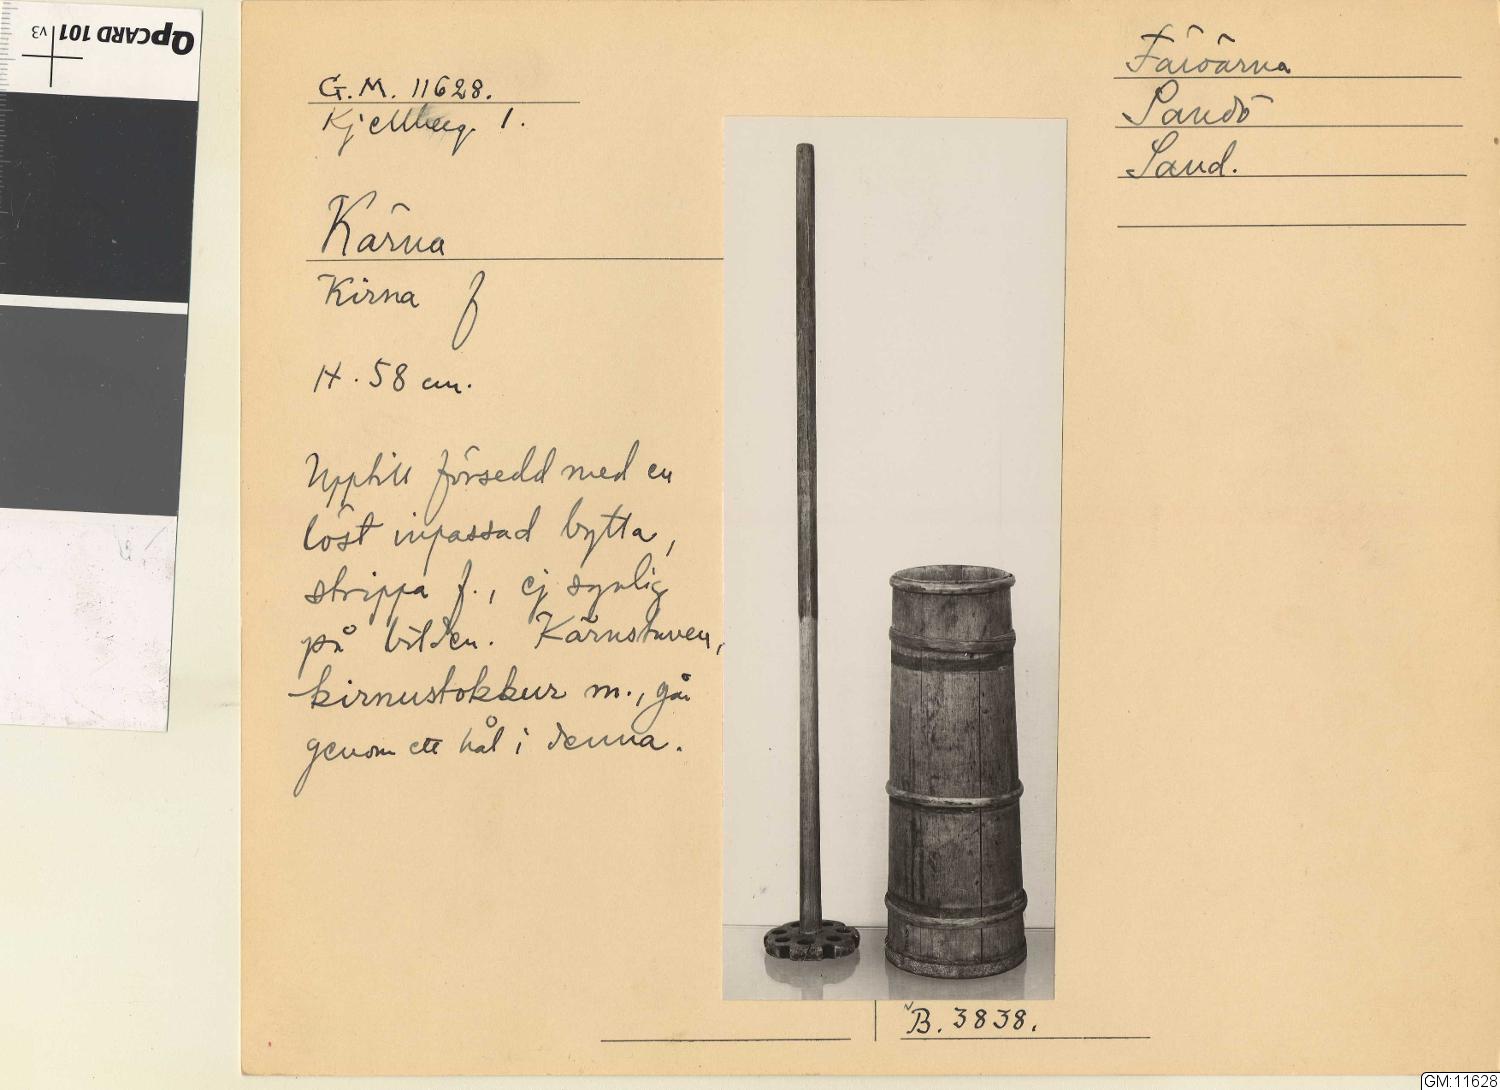 QpCARD 101 v3
G.M. 11628.
Kjellberg 1.
Kärna
Kirna f
H. 58 cm.
Upptill försedd med en
löst inpassad bytta,
strippa f., ej synlig
på bilden. Kärnstaven,
kirnustokkur m., går
genom ett hål i denna.
Färöarna
Sandö
Sand.
B. 3838.
GM:11628